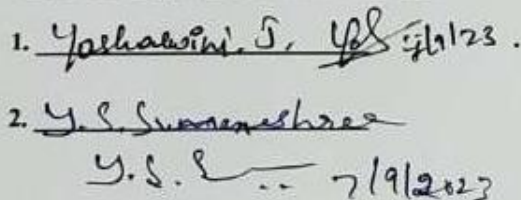 1. Yashaswini. J. /9/23.
2. Y. S. Sumaneshree
Y. S. S 7/9/2023